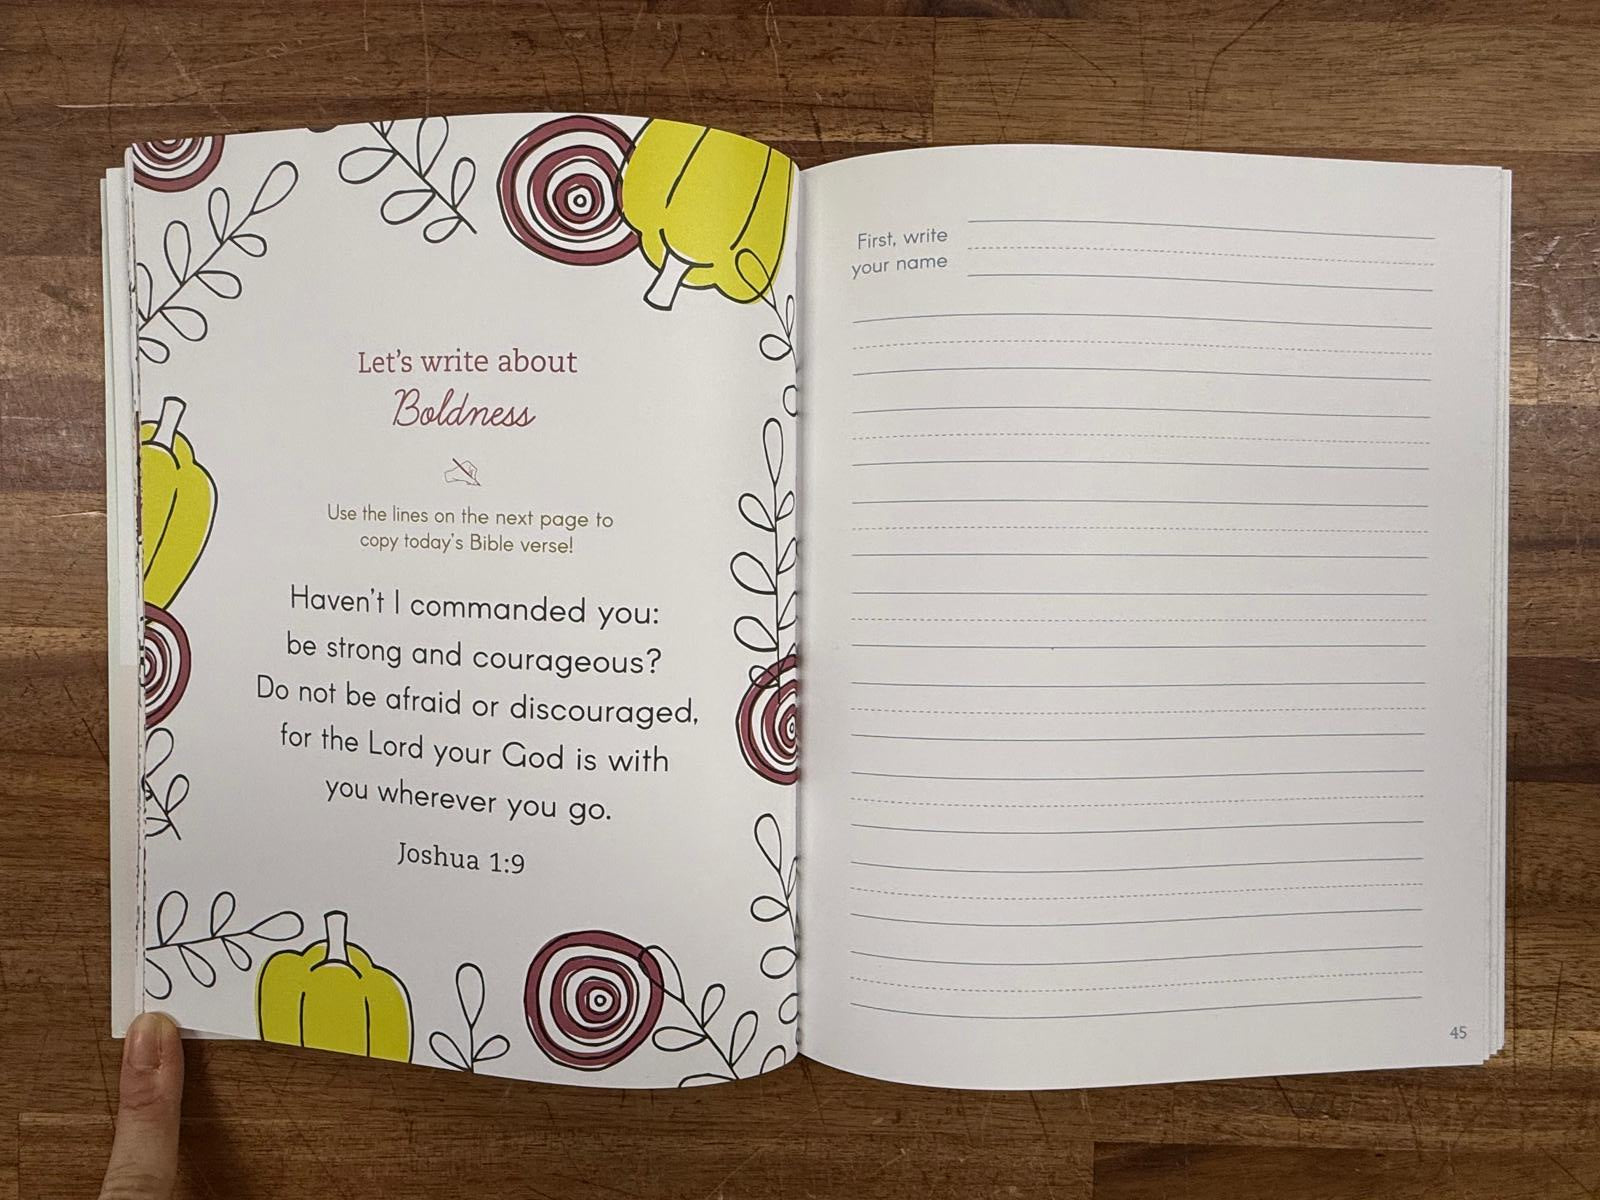 Let's write about
Boldness
Use the lines on the next page to
copy today's Bible verse!
Haven't I commanded you:
be strong and courageous?
Do not be afraid or discouraged,
for the Lord your God is with
you wherever you go.
Joshua 1:9
First, write
your name
45